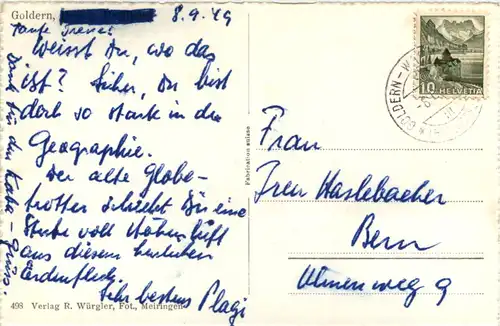 Goldern, 8.9.49
Tante Irene!
Weisst Du, wo das
ist? Sicher, Du bist
doch so stark in der
Geographie.
Der alte Globe-
trotter schickt Dir eine
Stube voll Höhenluft
aus diesem herrlichen
Erdenfleck.
Sehr bestens Plagi
Dank für den Kaba-Gruss.
498 Verlag R. Würgler, Fot., Meiringen
Fabrication suisse
10 HELVETIA
GOLDERN-
Frau
Iren Haslebacher
Bern
Ulmenweg 9